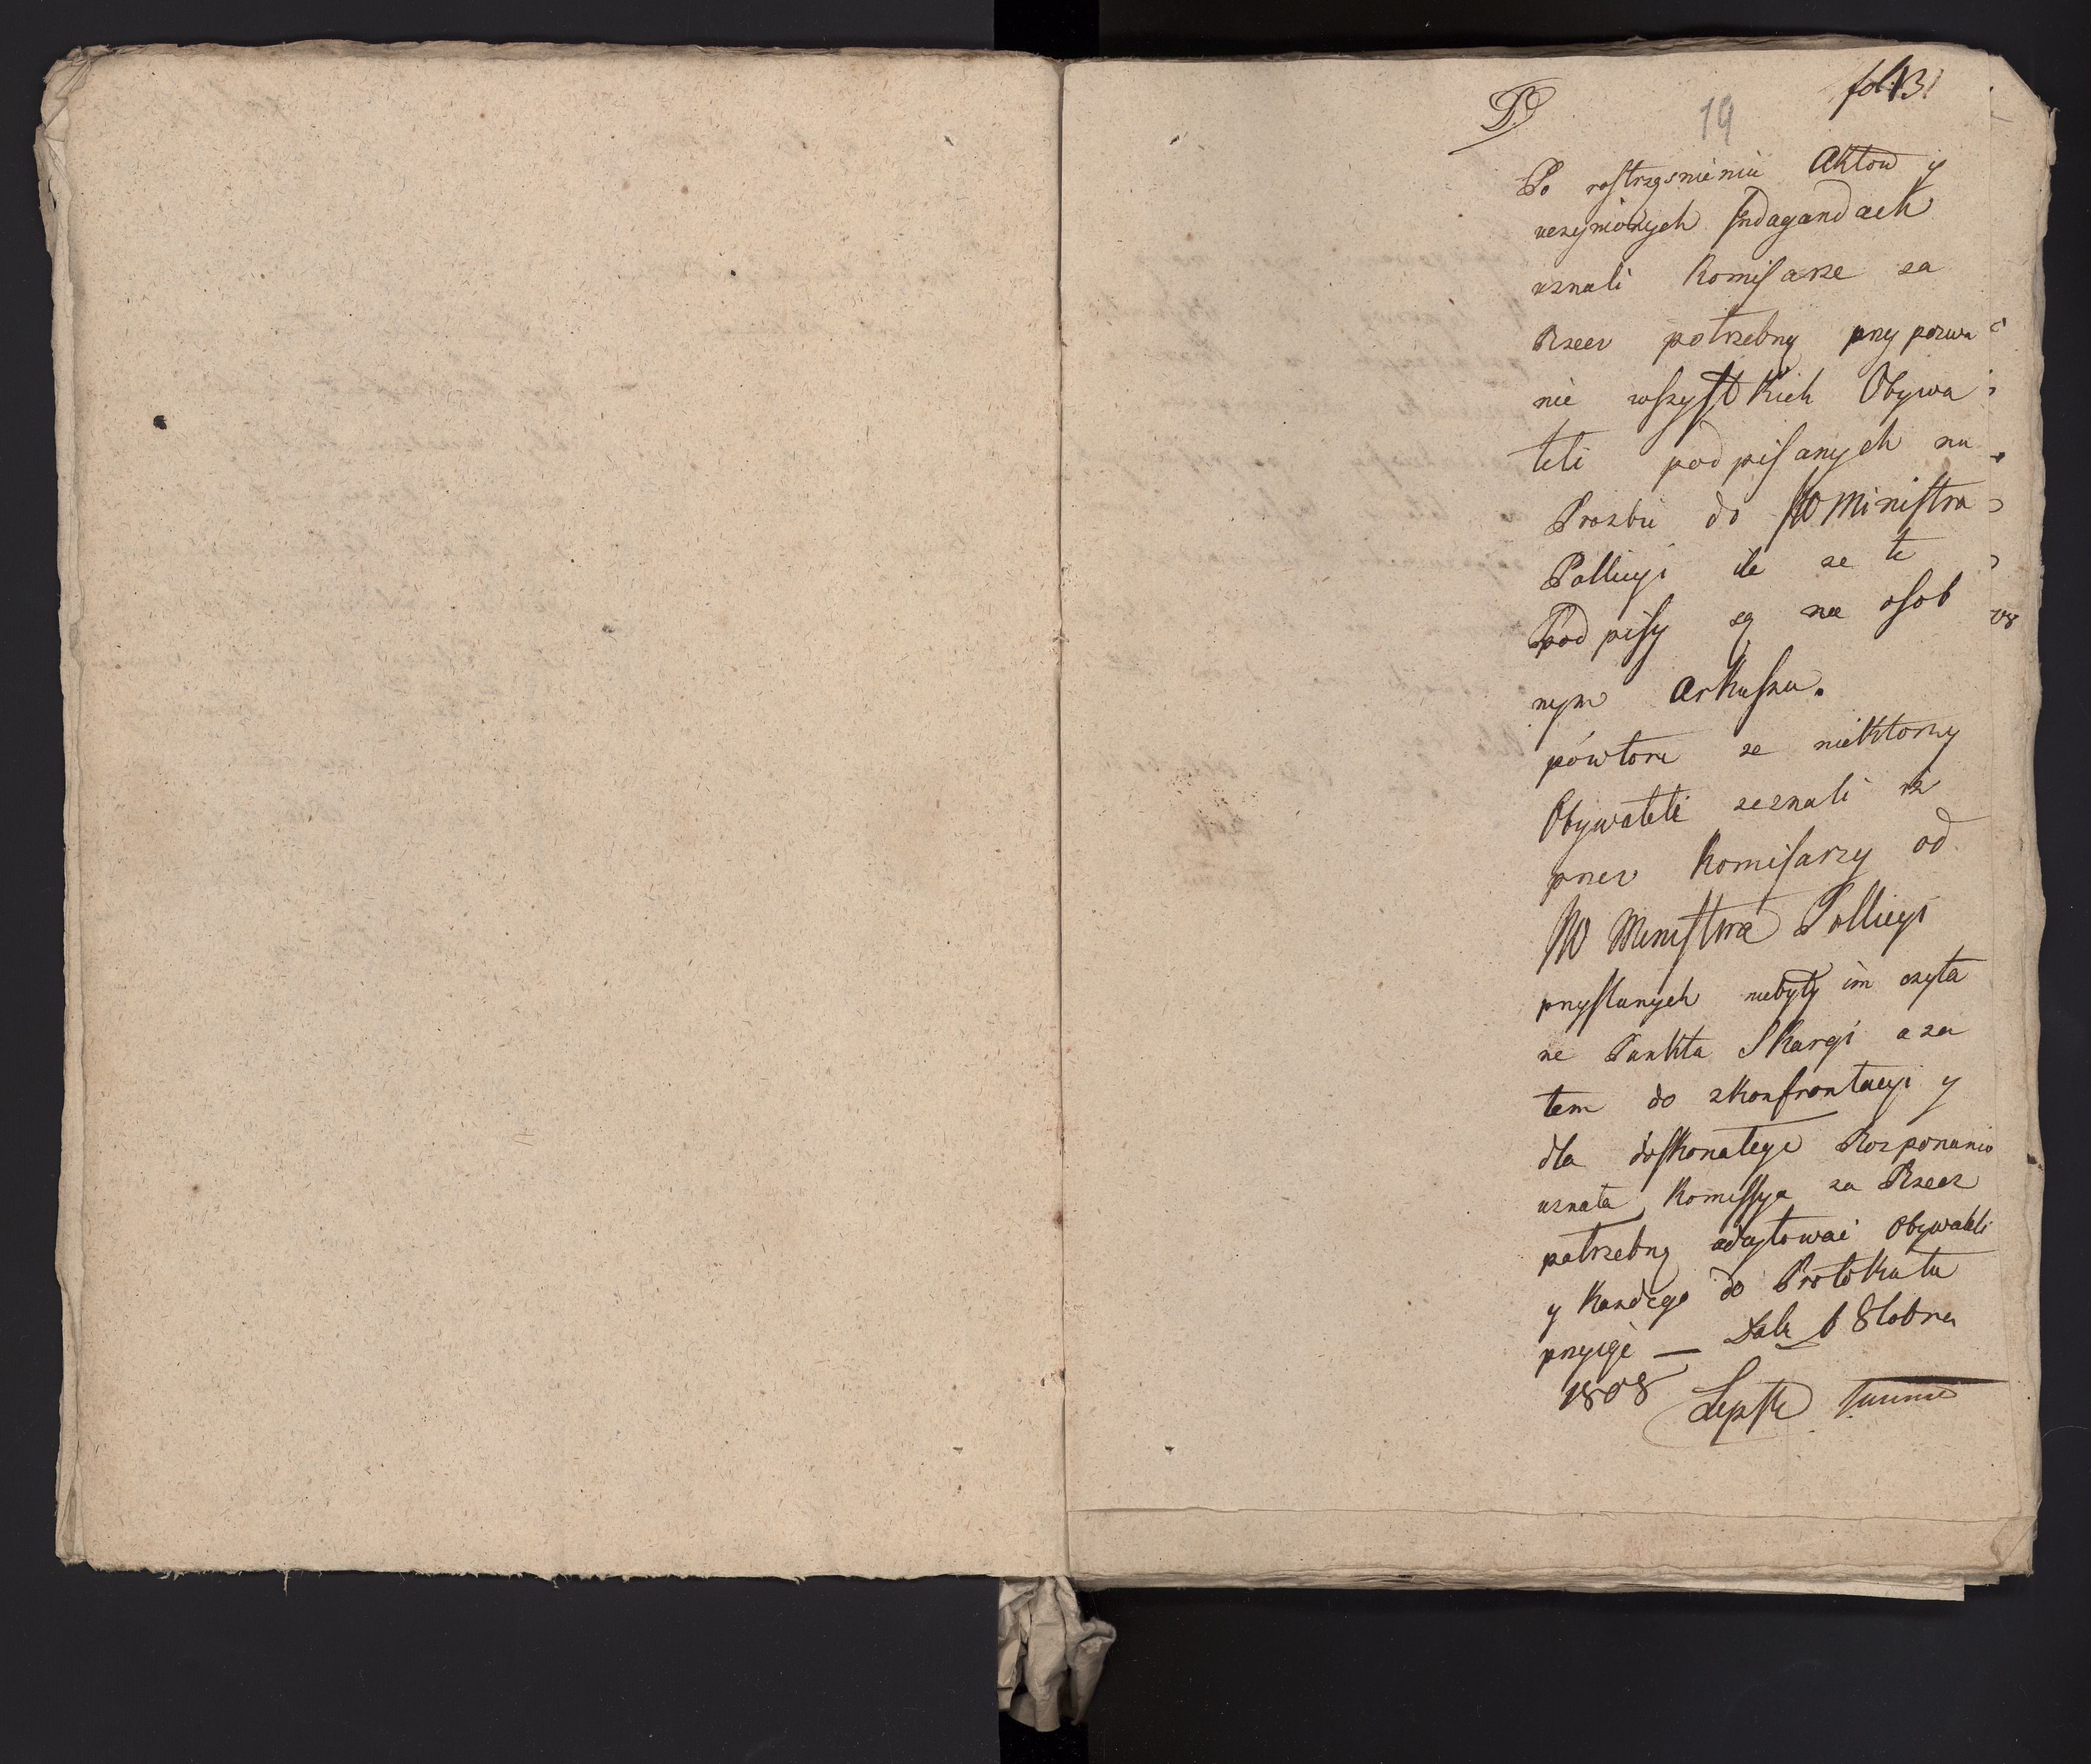 fol. 13
19
Po rostrząsnieniu Aktow y
uczynionych Indagandach
uznali Komisarze za
Rzecz potrzebną przypozwa
nie wszystkich Obywa
teli podpisanych na
Prozbie do JW Ministra
Pollicyi ile ze te
Podpisy są na osob
nym Arkuszu.
powtore ze niektorzy
Obywateli zeznali iż
przez Komisarzy od
JW Ministra Pollicyi
przysłanych niebyły im czyta
ne Punkta Skargi a za
tem do skonfrontacyi y
dla doskonałego Rozponania
uznała Komissya za Rzecz
potrzebną adcytować Obywateli
y Kazdego do Protokułu
przyiąć — 8tobra
1808